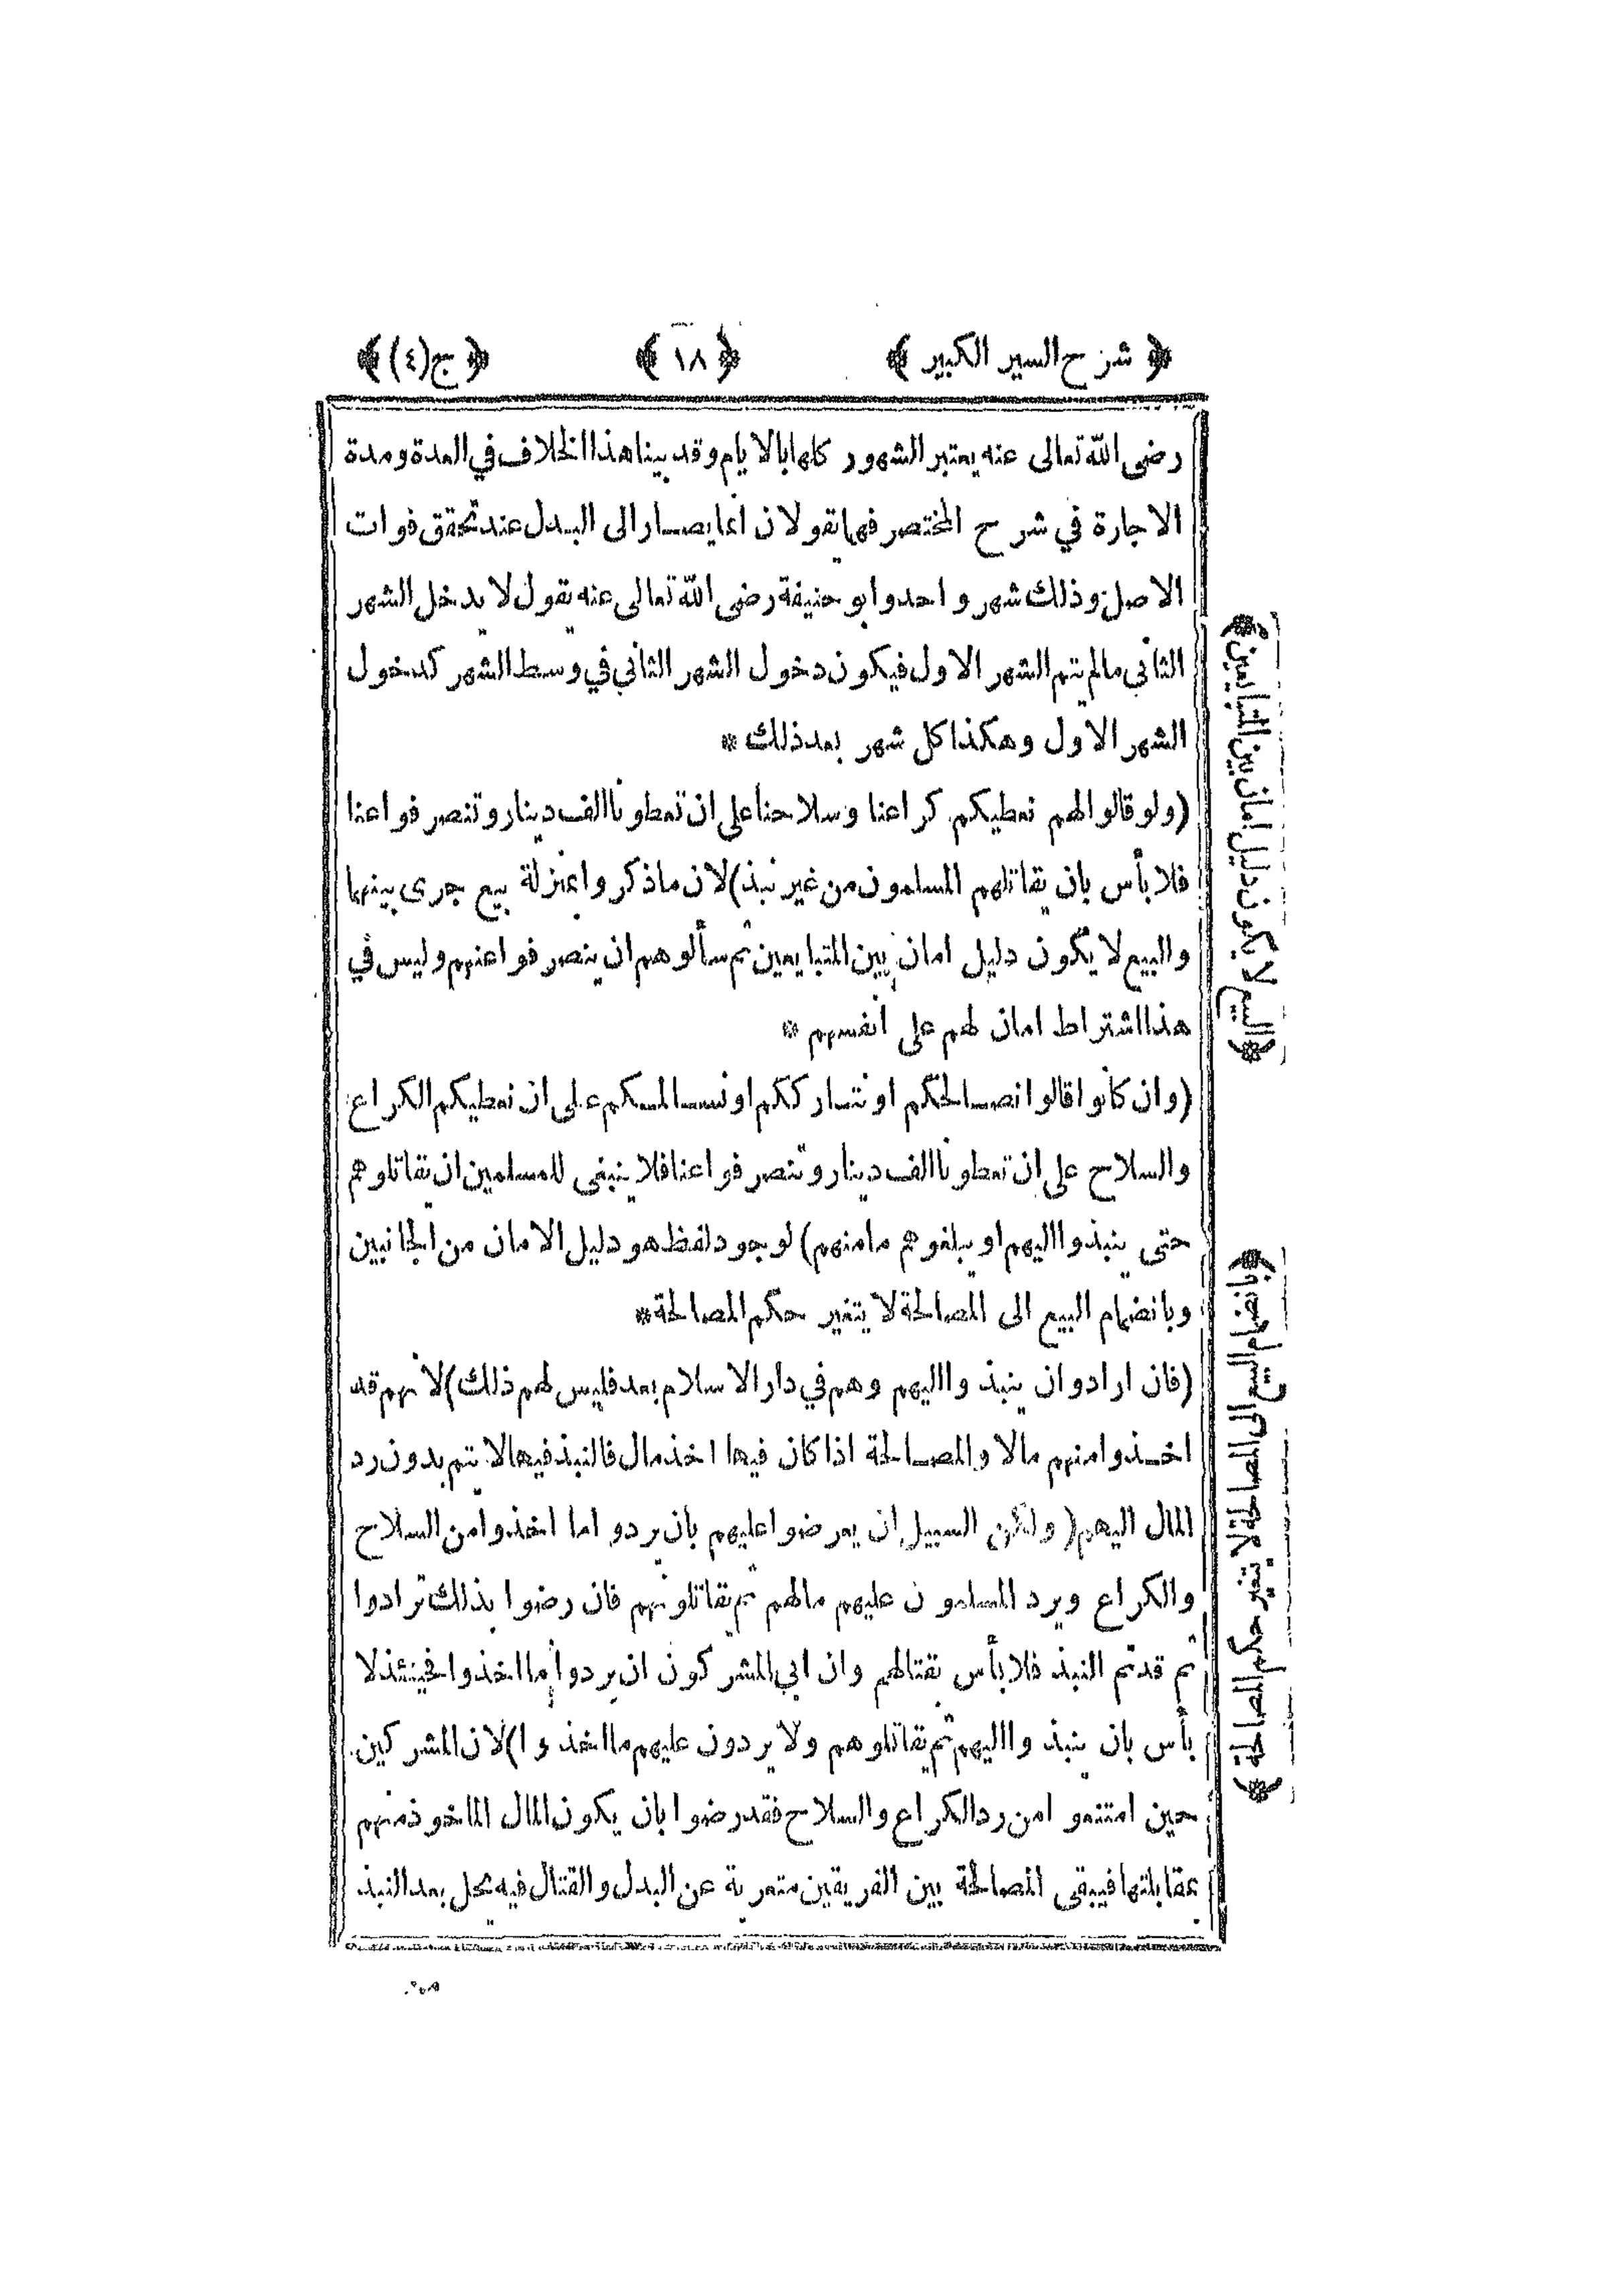 ﴿ شرح السير الكبير ﴾ ﴿ ١٨ ﴾ ﴿ ج (٤) ﴾
رضى الله تعالى عنه يعتبر الشهور كلها بالايام وقد بينا هذا الخلاف في العدة ومدة
الاجارة في شرح المختصر فهما يقولان انما يصار الى البدل عند تحقق فوات
الاصل وذلك شهر واحد وابو حنيفة رضى الله تعالى عنه يقول لا يدخل الشهر
الثانى مالم يتم الشهر الاول فيكون دخول الشهر الثاني في وسط الشهر كدخول
الشهر الاول وهكذا كل شهر بعد ذلك *
(ولو قالوا لهم نعطيكم كراعنا وسلاحنا على ان تعطونا الف دينار وتنصرفوا عنا
فلا بأس بان يقاتلهم المسلمون من غير نبذ) لان ما ذكروا بمنزلة بيع جرى بينهما
والبيع لا يكون دليل امان بين المتبايعين ثم سألوهم ان ينصرفوا عنهم وليس في
هذا اشتراط امان لهم على انفسهم *
(وان كانوا قالوا نصالحكم او نتارككم او نسالمكم على ان نعطيكم الكراع
والسلاح على ان تعطونا الف دينار وتنصرفوا عنا فلا ينبغى للمسلمين ان يقاتلوهم
حتى ينبذوا اليهم او يبلغوهم مامنهم) لوجود لفظ هو دليل الامان من الجانبين
وبانضمام البيع الى المصالحة لا يتغير حكم المصالحة *
(فان ارادوا ان ينبذوا اليهم وهم في دار الاسلام بعد فليس لهم ذلك) لانهم قد
اخذوا منهم مالا والمصالحة اذا كان فيها اخذ مال فالنبذ فيها لا يتم بدون رد
المال اليهم (ولكن السبيل ان يعرضوا عليهم بان يردوا ما اخذوا من السلاح
والكراع ويرد المسلمون عليهم مالهم ثم يقاتلونهم فان رضوا بذلك ترادوا
ثم قد تم النبذ فلا بأس بقتالهم وان ابى المشركون ان يردوا ما اخذوا فحينئذ لا
بأس بان ينبذوا اليهم ثم يقاتلوهم ولا يردون عليهم ما اخذوا) لان المشركين
حين امتنعوا من رد الكراع والسلاح فقد رضوا بان يكون المال الماخوذ منهم
بمقابلتها فيبقى المصالحة بين الفريقين متعرية عن البدل والقتال فيه يحل بعد النبذ
﴿ البيع لا يكون دليل امان بين المتبايعين ﴾
﴿ بانضمام البيع الى المصالحة لا يتغير حكم المصالحة ﴾